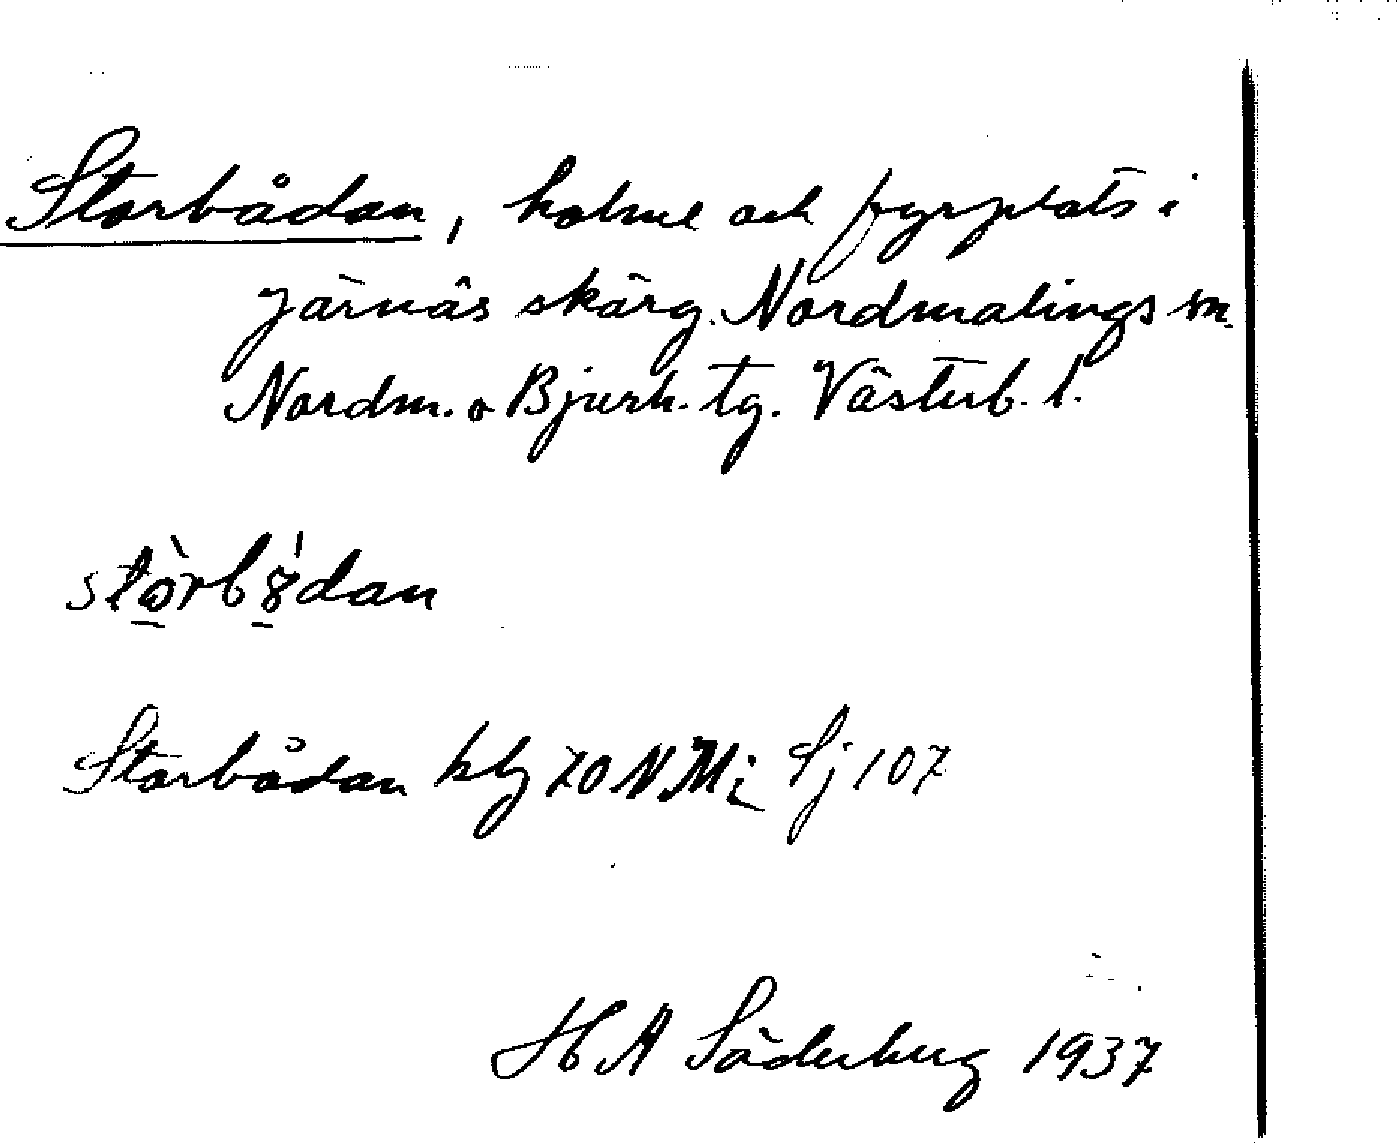 Storbådan, holme och fyrplats i
Järnäs skärg. Nordmalings sn.
Nordm. o Bjurh. tg. Västerb. l.
stòrbȣ́dan
Storbådan blz 70 NMi Sj 107
H A Söderberg 1937